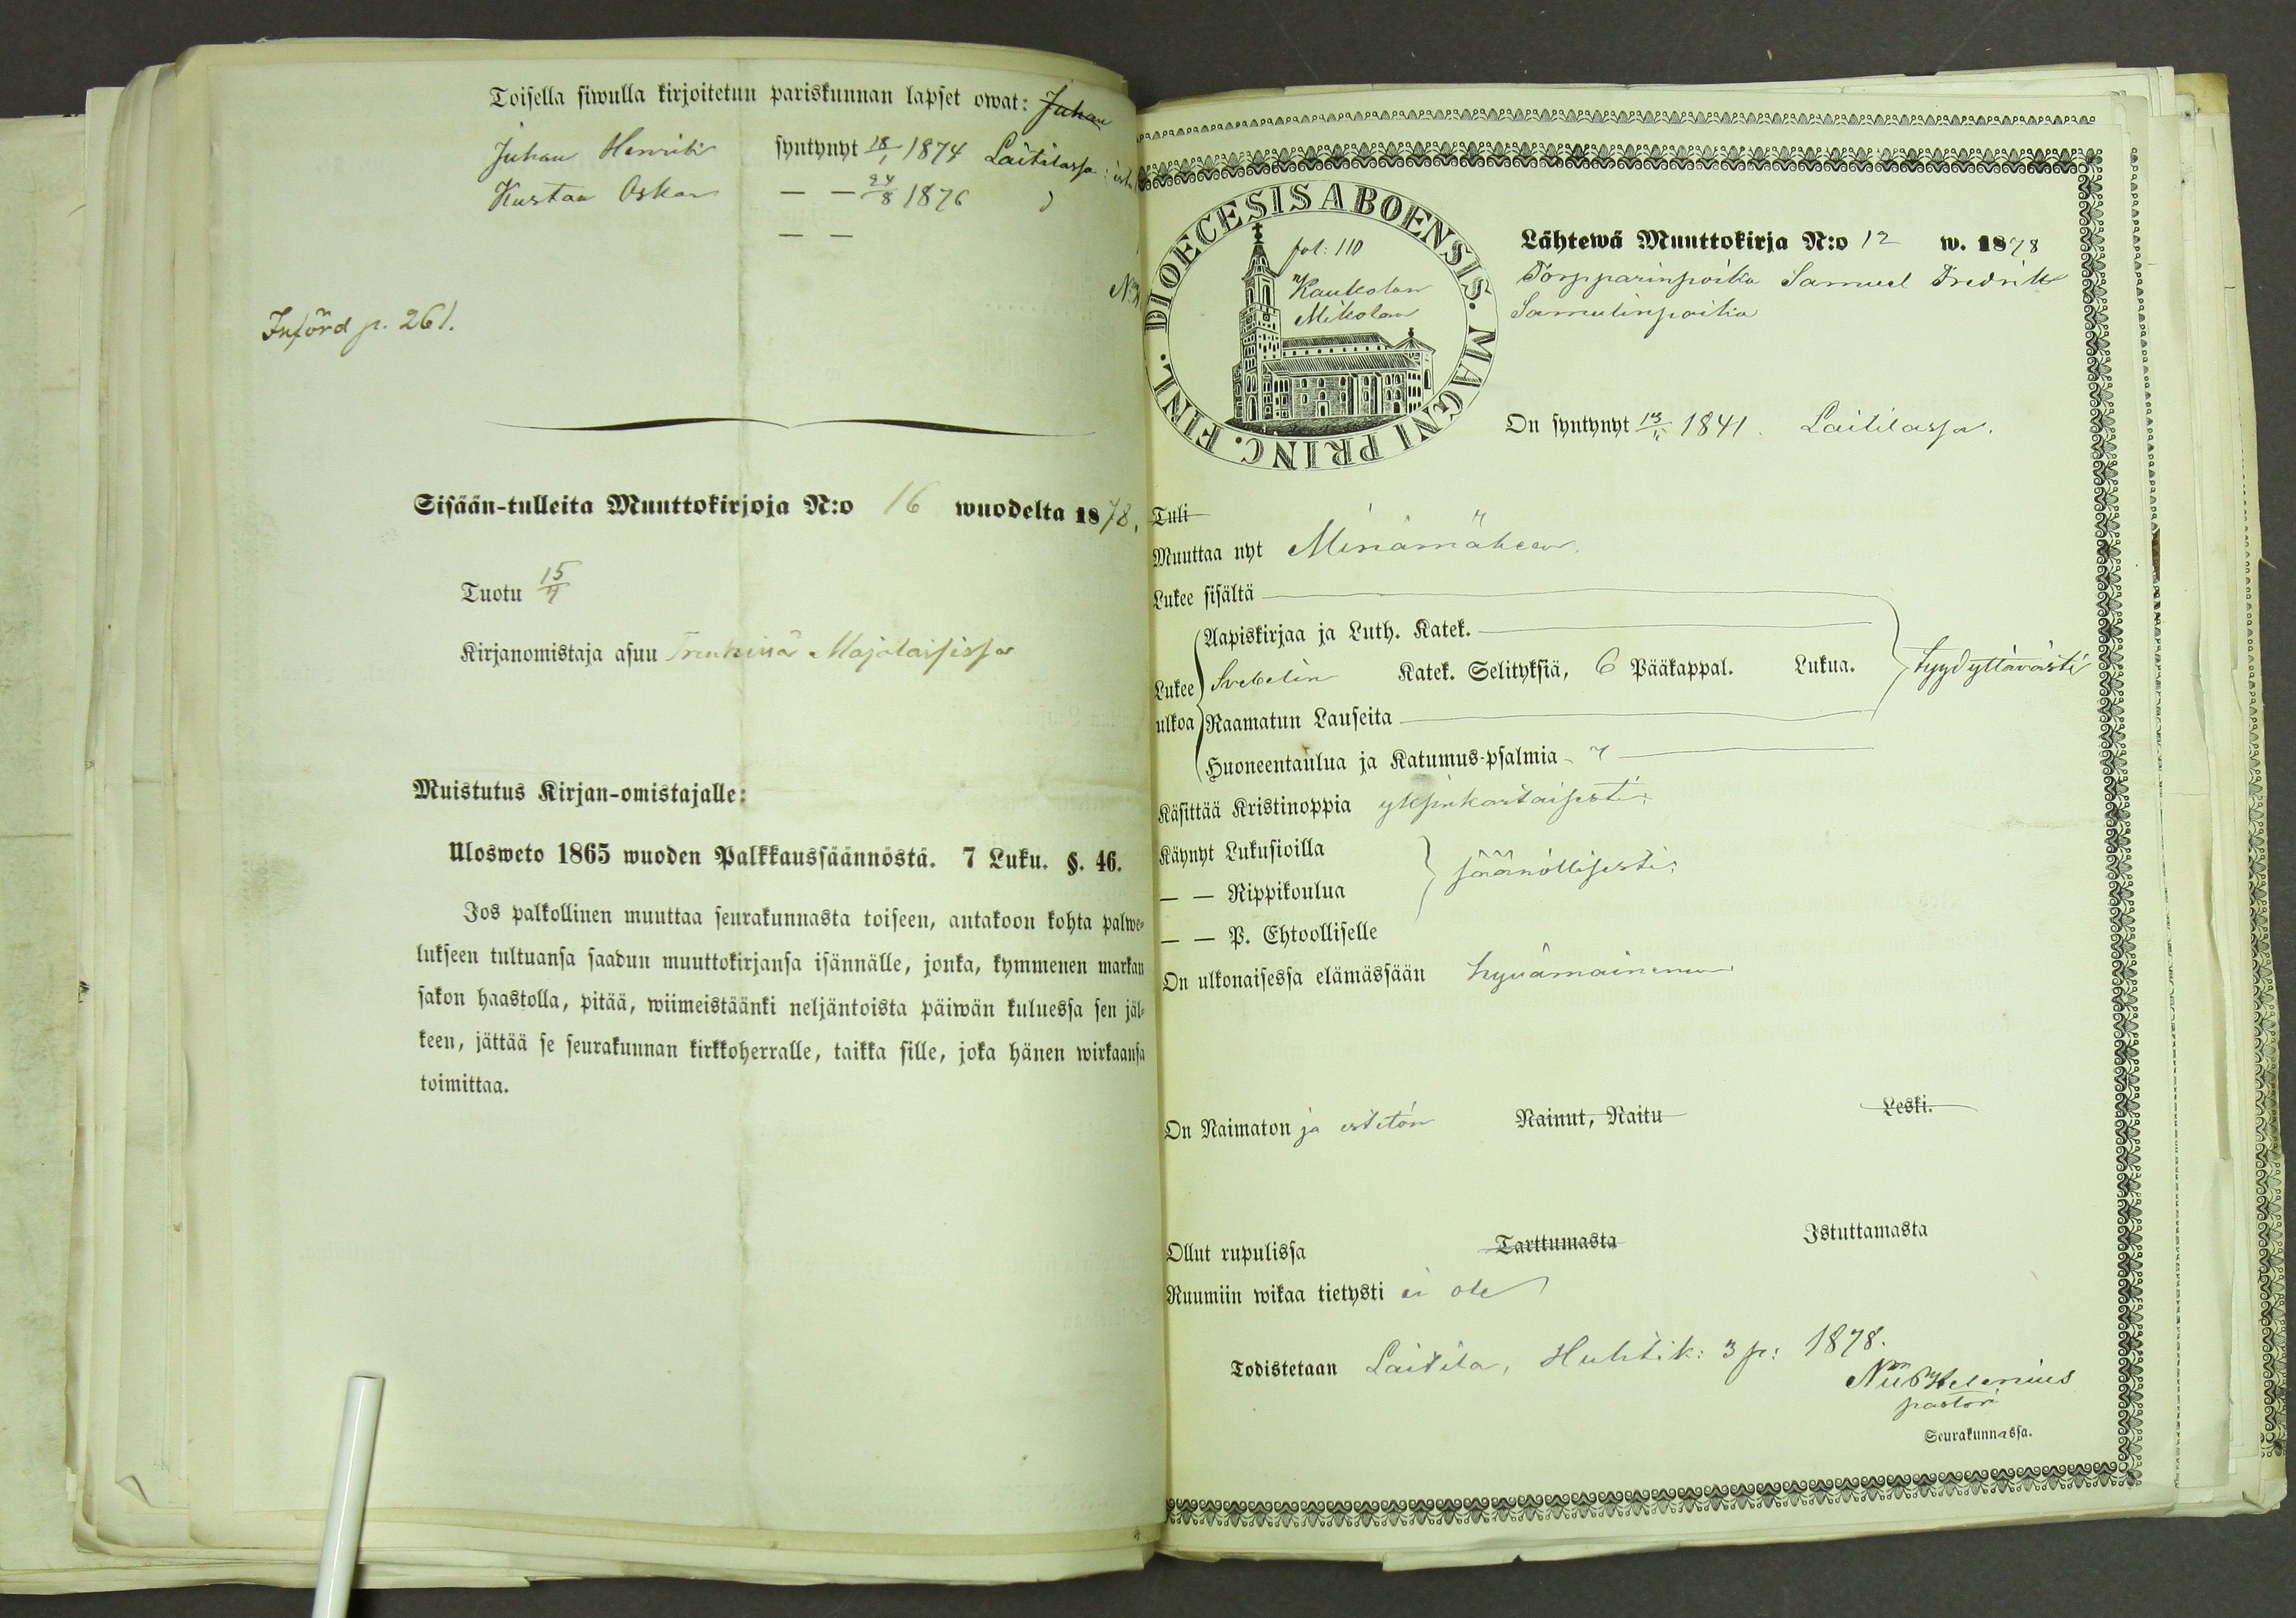 Toisella siwulla kirjoitetun pariskunnan lapset owat: Juhan
Juhan Henrik syntynyt 18/1 1874 Laitilassa
Kustaa Oskar — — 24/8 1876
— —
Införd p. 261.
Sisään-tulleita Muuttokirjoja N:o 16 wuodelta 1878,
Tuotu 15/4
Kirjanomistaja asuu
Muistutus Kirjan-omistajalle:
Ulosweto 1865 wuoden Palkkaussäännöstä. 7 Luku. §. 46.
Jos palkollinen muuttaa seurakunnasta toiseen, antakoon kohta palwe-
lukseen tultuansa saadun muuttokirjansa isännälle, jonka, kymmenen markan
sakon haastolla, pitää, wiimeistäänki neljäntoista päiwän kuluessa sen jäl-
keen, jättää se seurakunnan kirkkoherralle, taikka sille, joka hänen wirkaansa
toimittaa.
FINL. DIOECESIS ABOENSIS. MAGNI PRINC.
fol: 110
Kaukolan
Mikolan
Lähtewä Muuttokirja N:o 12 w. 1878
Torpparinpoika Samuel Fredrik
Samulinpoika
On syntynyt 1841 Laitilassa.
Tuli
Muuttaa nyt Hinnämäkeen
Lukee sisältä
Lukee ulkoa
Aapiskirjaa ja Luth. Katek.
Svebelin Katek. Selityksiä, 6 Pääkappal. Lukua. tyydyttävästi
Raamatun Lauseita
Huoneentaulua ja Katumus-psalmia
Käsittää Kristinoppia yksinkertaisesti
Käynyt Lukusioilla
— — Rippikoulua säännöllisesti
— — P. Ehtoolliselle
On ulkonaisessa elämässään hyvämaineinen
On Naimaton ja esteetön Nainut, Naitu Leski.
Ollut rupulissa Tarttumasta Istuttamasta
Ruumiin wikaa tietysti ei ole
Todistetaan Laitila, Huhtik: 3 p: 1878.
Helenius
pastori
Seurakunnassa.